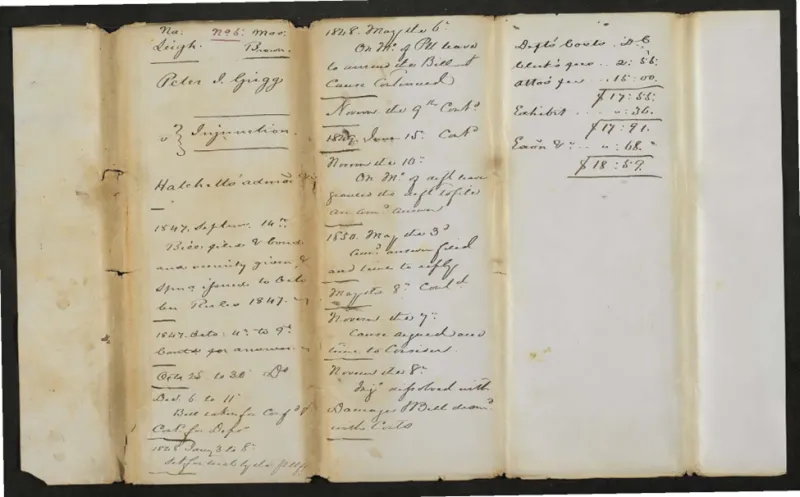 No. No 6. Mar.
Leigh. Brown.
Peter J. Grigg
v } Injunction.
Hatchett's admor
1847. Septem. 14th
Bill filed & bond
and security given &
spa. issued to Octo
ber Rules 1847.
1847. Octo. 4th to 9th
Contd for answer.
Octo 25 to 30. Do
Dec. 6 to 11
Bill taken for Conf'd
1848 Jany 3 to 8
1848. May the 6th
On Mo. of Plf leave
to amend the Bill &
Cause Continued
Novem the 9th Contd
1849. June 15. Contd
Novem the 10th
On Mo. of deft leave
granted the deft to file
an amd answer
1850. May the 3d
Amd answer filed
and time to reply
May the 8th Contd
Novem the 7th
Cause argued and
time to Consider.
Novem the 8th
Injn dissolved with
Damages & Bill dismd
with Costs
Defts Costs. D C
Clerk's fees .. 2: 55:
Attos fee .. 15: 00.
$17: 55:
Exhibit .. " : 36.
$17: 91.
" : 68. "
$18: 59.